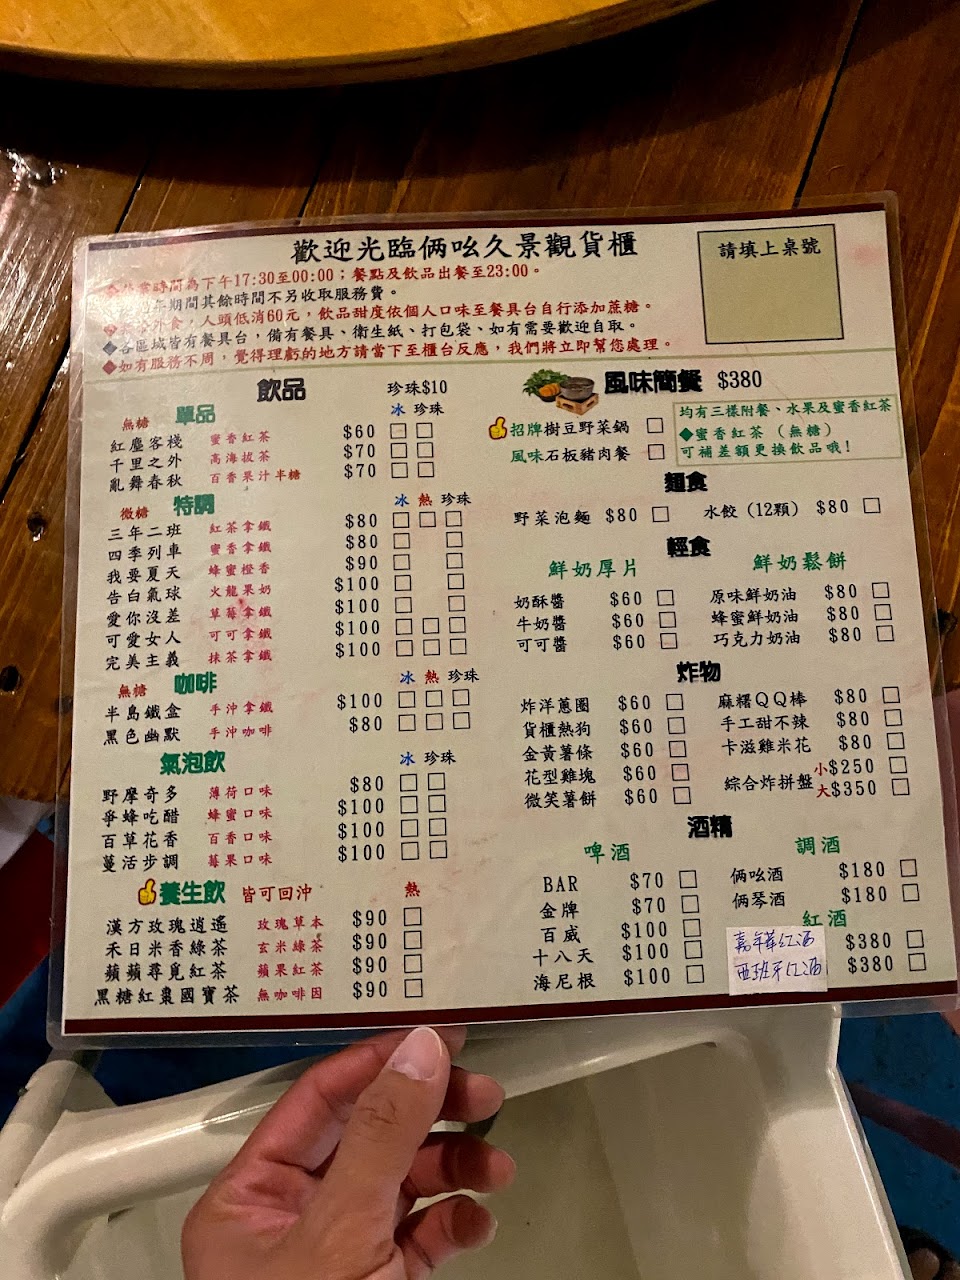 歡迎光臨倆吆久景觀貨櫃
請填上桌號
時間為下午17:30至00:00；餐點及飲品出餐至23:00。
年期間其餘時間不另收取服務費。
外食，人頭低消60元，飲品甜度依個人口味至餐具台自行添加蔗糖。
◆各區域皆有餐具台，備有餐具、衛生紙、打包袋、如有需要歡迎自取。
◆如有服務不周，覺得理虧的地方請當下至櫃台反應，我們將立即幫您處理。
飲品 珍珠$10
無糖 單品 冰 珍珠
紅塵客棧 蜜香紅茶 $60
千里之外 高海拔茶 $70
亂舞春秋 百香果汁半糖 $70
微糖 特調 冰 熱 珍珠
三年二班 紅茶拿鐵 $80
四季列車 蜜香拿鐵 $80
我要夏天 蜂蜜橙香 $90
告白氣球 火龍果奶 $100
愛你沒差 草莓拿鐵 $100
可愛女人 可可拿鐵 $100
完美主義 抹茶拿鐵 $100
無糖 咖啡 冰 熱 珍珠
半島鐵盒 手沖拿鐵 $100
黑色幽默 手沖咖啡 $80
氣泡飲 冰 珍珠
野摩奇多 薄荷口味 $80
爭蜂吃醋 蜂蜜口味 $100
百草花香 百香口味 $100
蔓活步調 莓果口味 $100
養生飲 皆可回沖 熱
漢方玫瑰逍遙 玫瑰草本 $90
禾日米香綠茶 玄米綠茶 $90
蘋蘋尋覓紅茶 蘋果紅茶 $90
黑糖紅棗國寶茶 無咖啡因 $90
風味簡餐 $380
招牌樹豆野菜鍋
風味石板豬肉餐
均有三樣附餐、水果及蜜香紅茶
◆蜜香紅茶（無糖）
可補差額更換飲品哦！
麵食
野菜泡麵 $80 水餃(12顆) $80
輕食
鮮奶厚片 鮮奶鬆餅
奶酥醬 $60 原味鮮奶油 $80
牛奶醬 $60 蜂蜜鮮奶油 $80
可可醬 $60 巧克力奶油 $80
炸物
炸洋蔥圈 $60 麻糬QQ棒 $80
貨櫃熱狗 $60 手工甜不辣 $80
金黃薯條 $60 卡滋雞米花 $80
花型雞塊 $60 綜合炸拼盤 小$250
微笑薯餅 $60 大$350
酒精
啤酒 調酒
BAR $70 倆吆酒 $180
金牌 $70 倆琴酒 $180
紅酒
百威 $100 嘉年華紅酒 $380
十八天 $100 西班牙紅酒 $380
海尼根 $100